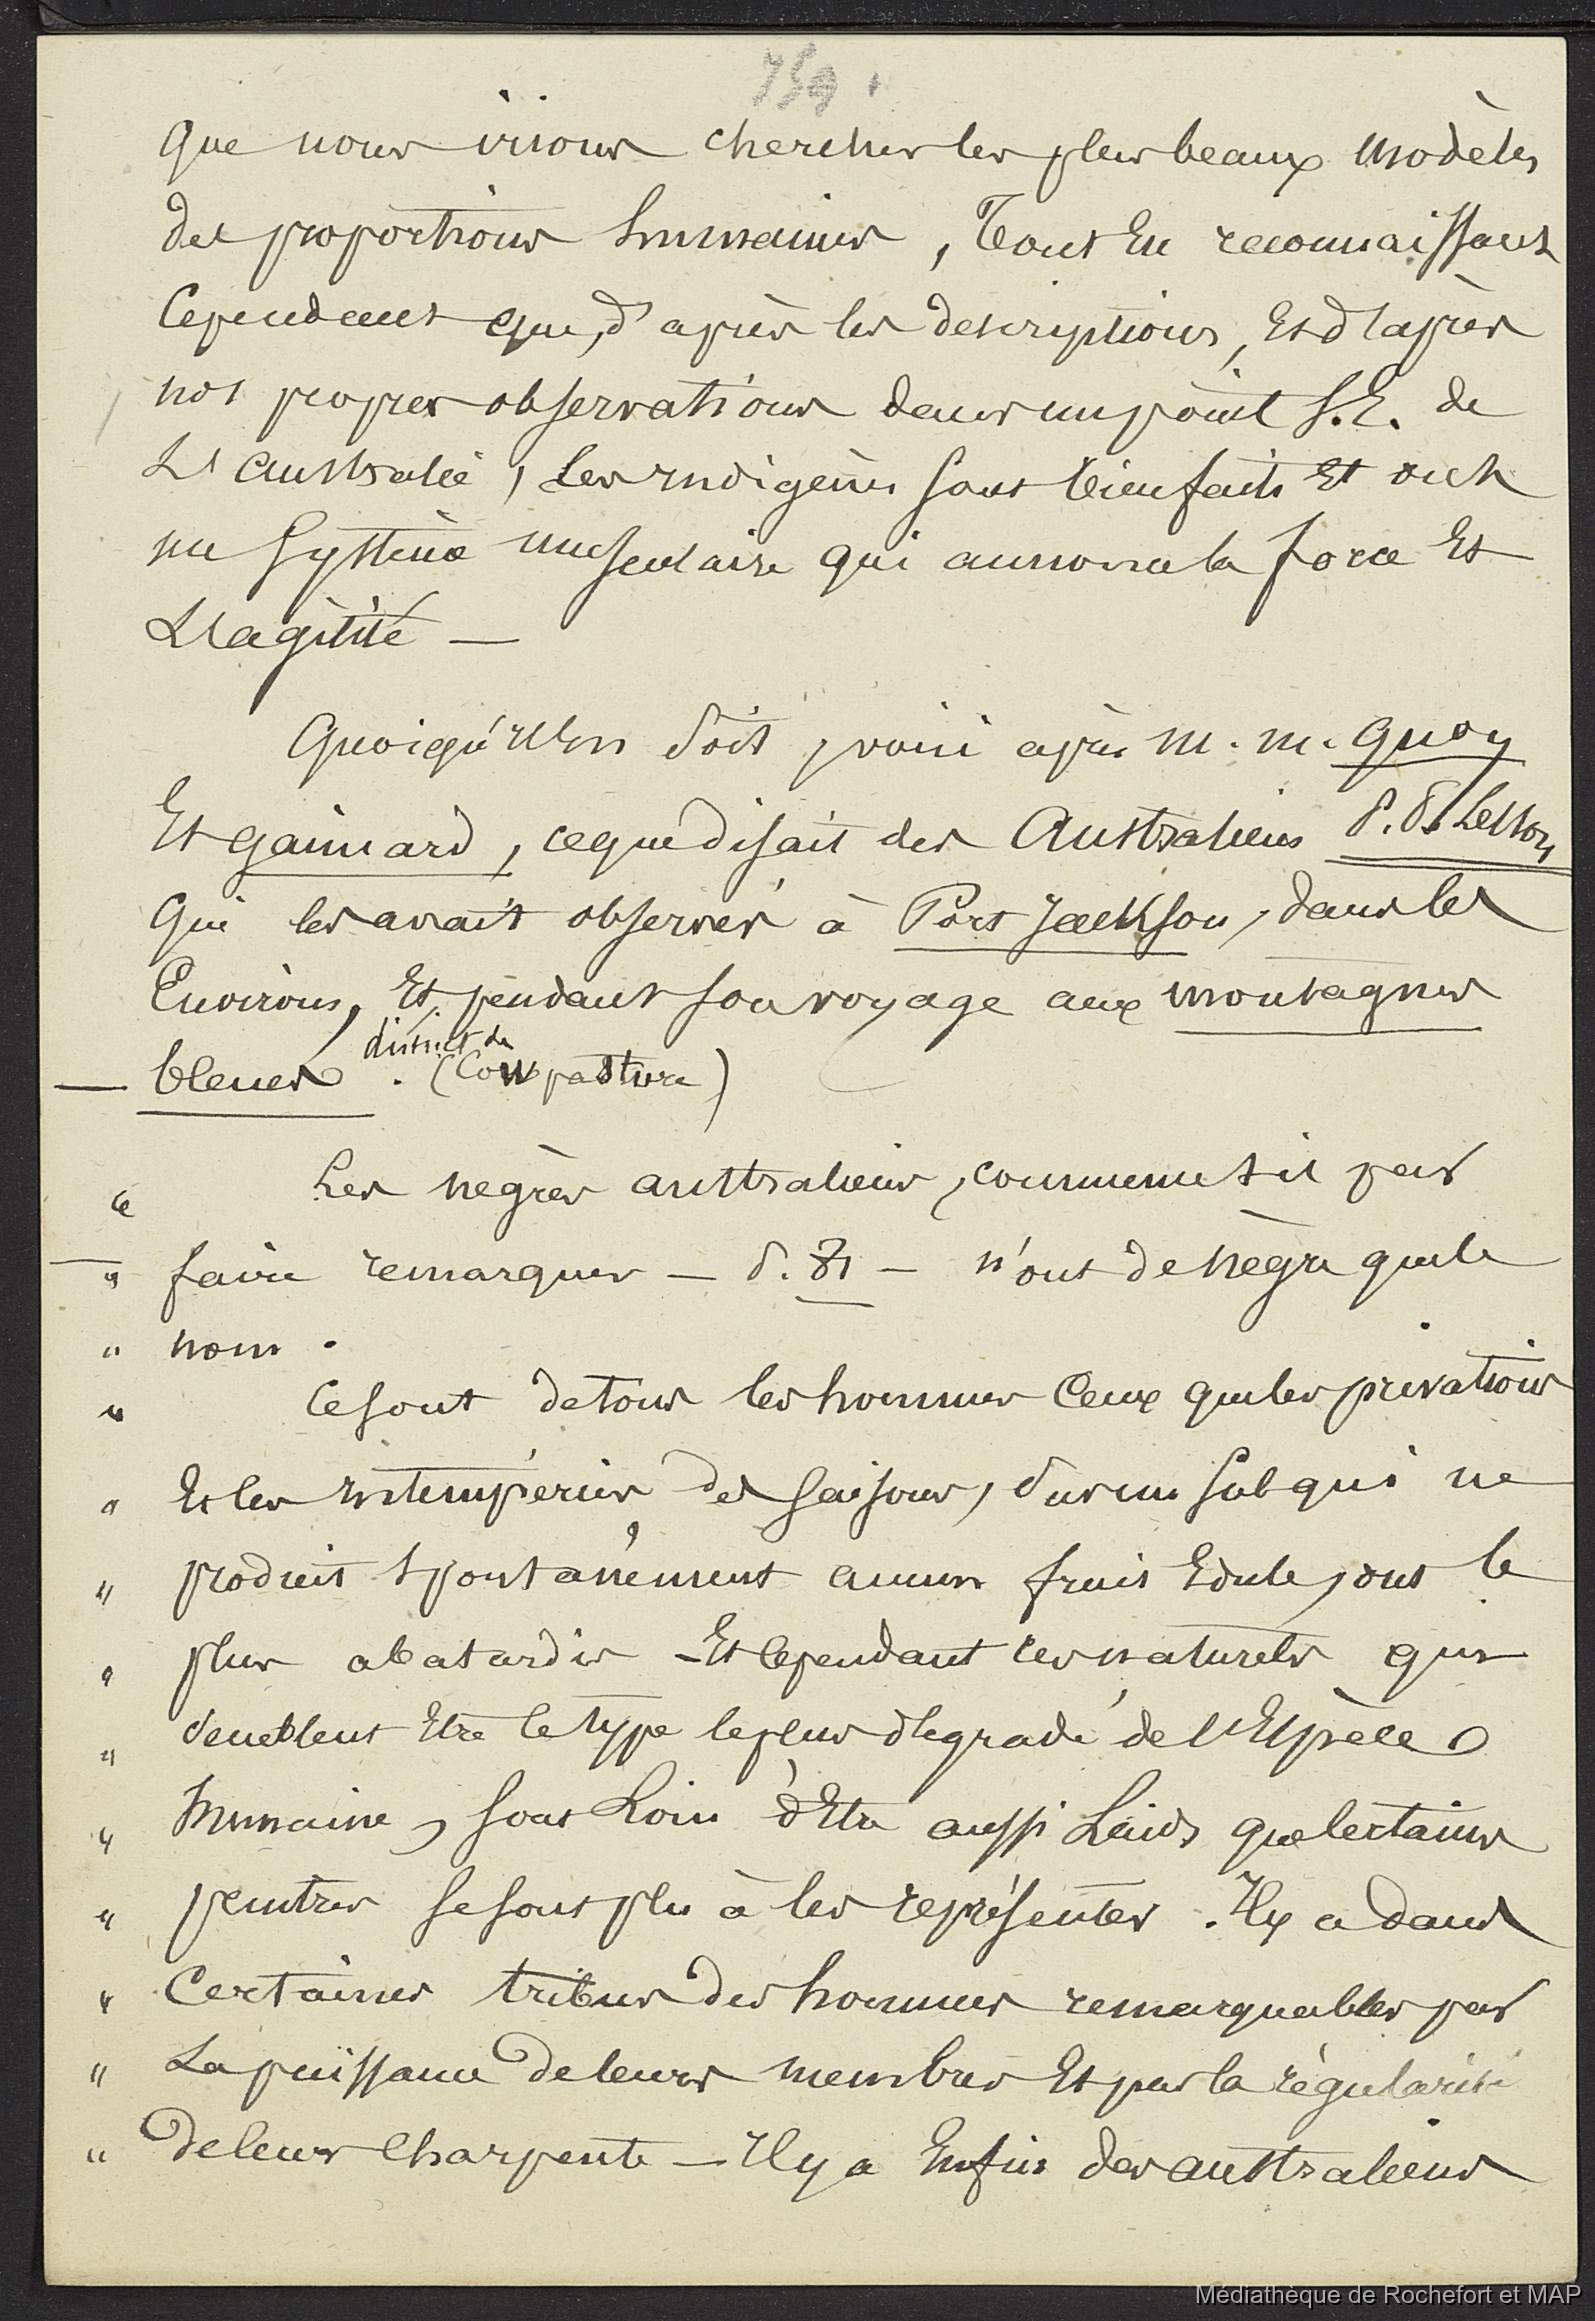 759.
que nous irions chercher les plus beaux modèles
des proportions humaines, Tout en reconnaissant
Cependant que, d'après les descriptions, Et d'après
nos propres observations dans un point S.E. de
L'australie, Les indigènes sont bien faits Et ont
un système musculaire qui annonce la force Et
L'agilité —
Quoiqu'il en soit, voici après M. M. Quoy
Et Gaimard, ce que disait des Australiens P. Lesson
qui les avait observés à Port Jackson, dans les
Environs, Et pendant son voyage aux montagnes
— bleues. (district de Cow pasture)
" Les nègres australiens, commence-t-il par
" faire remarquer — p. 81 — n'ont de nègre que le
" nom.
" Ce sont de tous les hommes Ceux que les privations
" Et les intempéries des saisons, sur un sol qui ne
" produit spontanément aucun fruit Edule, ont le
" plus abatardis — Et cependant ces naturels qui
" semblent Etre le type le plus dégradé de l'Espèce
" humaine, sont Loin d'Etre aussi Laids que certains
" peintres se sont plu à les représenter. Il y a dans
" Certaines tribus des hommes remarquables par
" La puissance de leurs membres Et par la régularité
" de leur Charpente — Il y a Enfin des australiens
Médiathèque de Rochefort et MAP